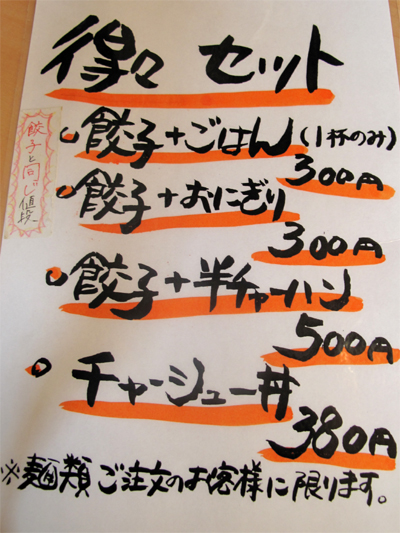 得々 セット
餃子+ごはん(1杯のみ)
300円
餃子+おにぎり
300円
餃子+半チャーハン
500円
チャーシュー丼
380円
※麺類ご注文のお客様に限ります。
餃子と同じ値段